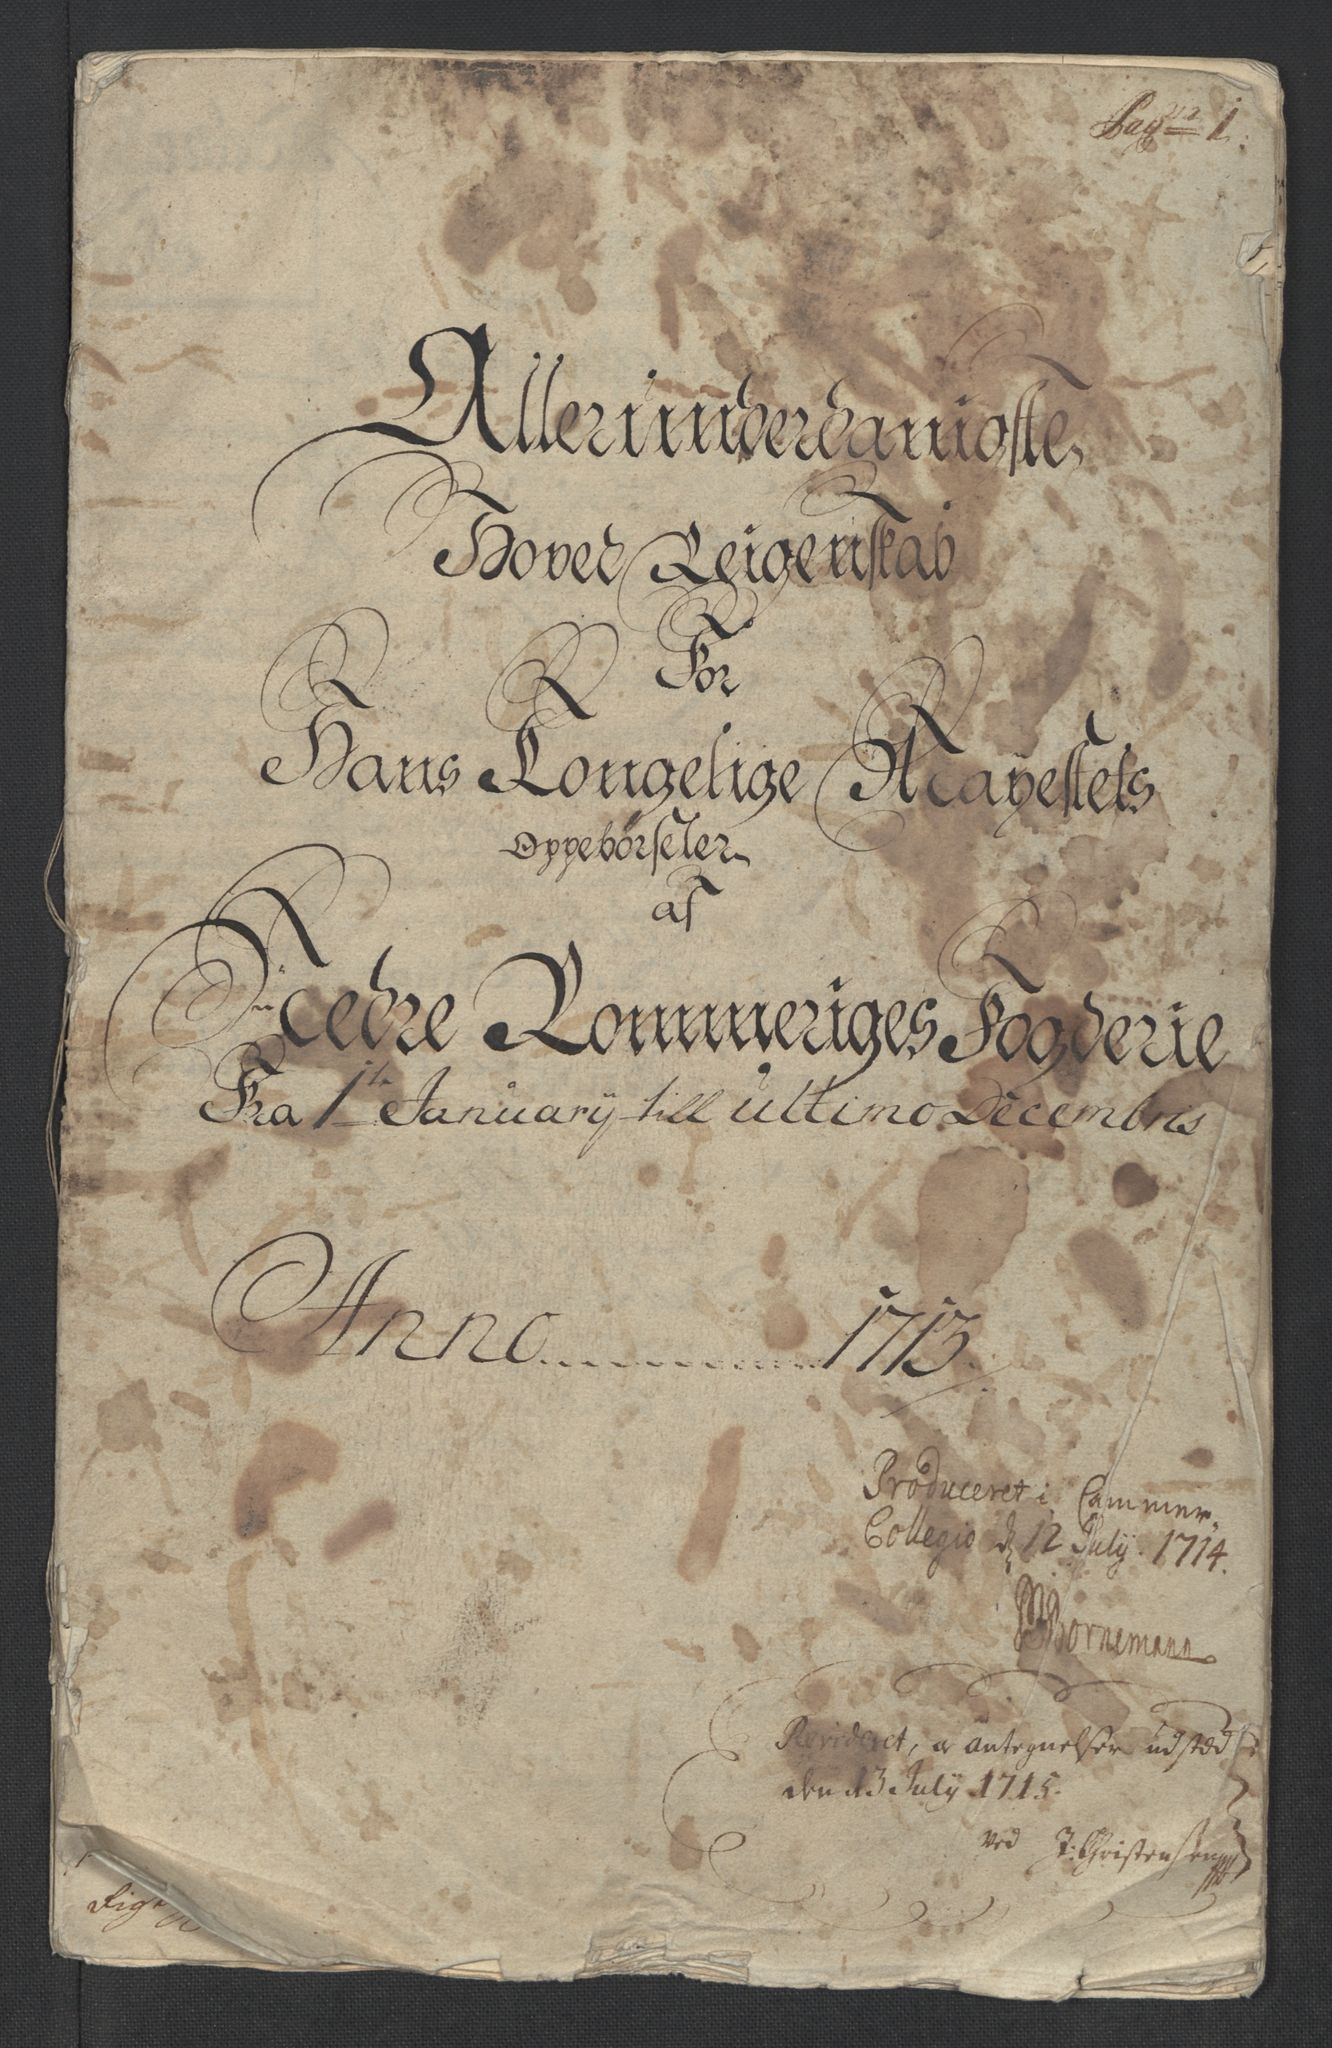 Pag: 1.
Allerunderdanigste
Hoved Reigenskab
For
Hans Kongelige Mayestets
Oppebörseler
af
Nedre Rommeriges Fogderie
Fra 1te January till ultimo Decembris
Anno 1713.
Produceret i Cammer
Collegio d 12 July. 1714.
Bornemann
Revideret, og antegnelser udstæd
den 13 July 1715.
ved T: Christensen